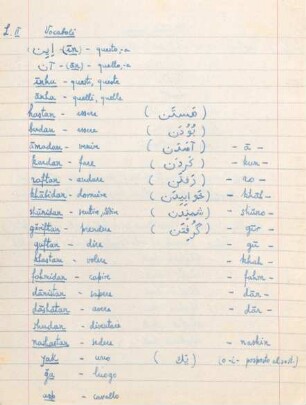 L. II Vocaboli
این (īn) - questo, -a
آن (ān) - quello, -a
īnhu - questi, queste
ānhu - quelli, quelle
hastan - essere ( هستن )
budan - essere ( بودن )
āmadan - venire ( آمدن ) - ā -
kardan - fare ( کردن ) - kun -
raftan - andare ( رفتن ) - ro -
khābidan - dormire ( خوابیدن ) - khāb -
- sentire ( شنیدن )
giriftan - prendere ( گرفتن ) - gir -
guftan - dire - gū -
khastan - volere - khah -
fahmidan - capire - fahm -
dānistan - sapere - dān -
dāshtan - avere - dār -
shudan - diventare
- sedere - nashin
yak - uno ( یک )
- luogo
asb - cavallo